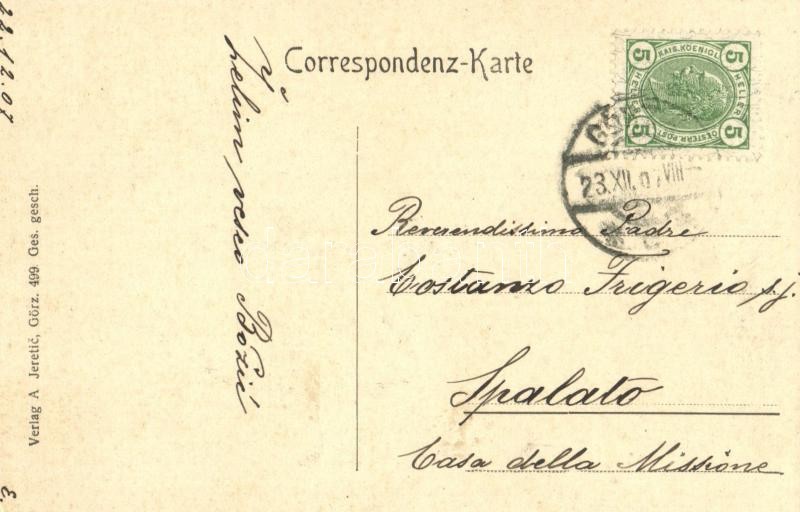 Correspondenz-Karte
22.12.07
želim veseo Božić
5 KAIS. KOENIGL. 5
HELLER HELLER
5 OESTERR. POST 5
GÖRZ
23.XII.07 VIII
Reverendissimo Padre
Costanzo Frigerio s.j.
Spalato
Casa della Missione
Verlag A Jeretič, Görz. 499. Ges. gesch.